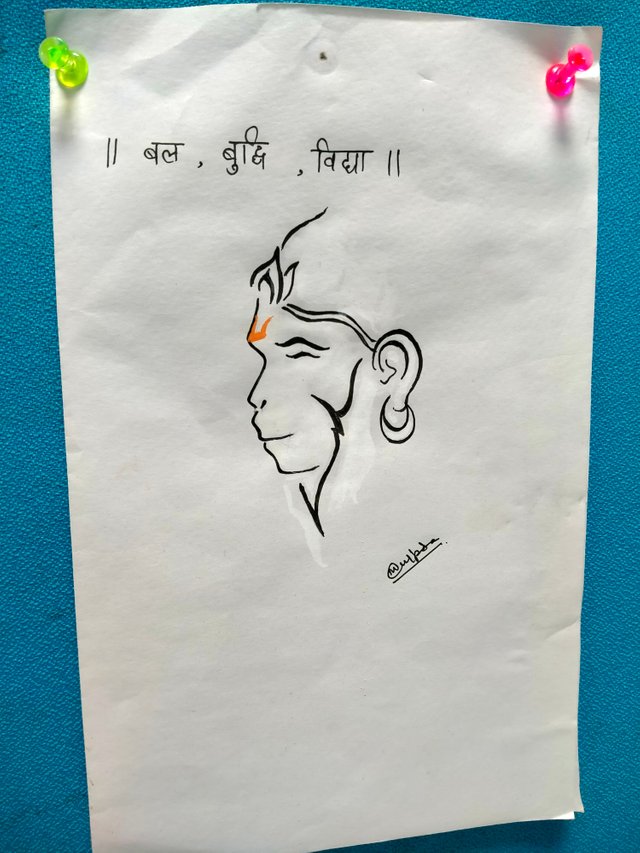 || बल , बुद्धि , विद्या ||